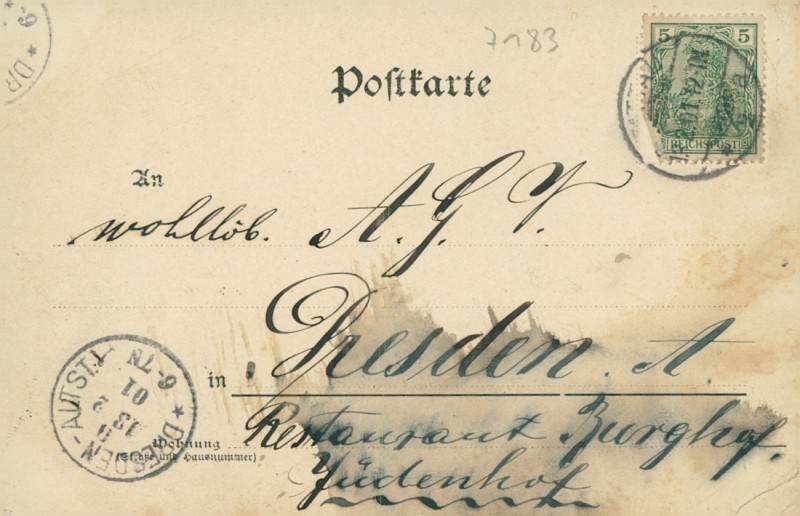 7183
5 5
REICHSPOST
Postkarte
An
wohllöb. A. G. V.
Dresden. A.
in
Restaurant Burghof.
Wohnung
(Straße und Hausnummer)
Jüdenhof
DRESDEN-ALTST.1.
13 2
01
6-7N